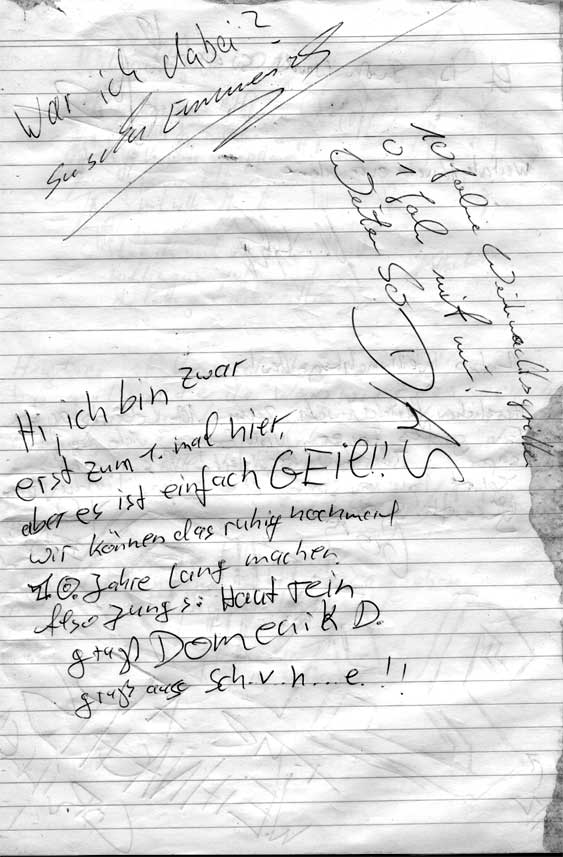 War ich dabei?
10 fache Weihnachtsgrüße
01 fach mit mir!
Weiter so
DAS
Hi, ich bin zwar
erst zum 1. mal hier,
aber es ist einfach GEil!!
wir können das ruhig nochmal
10. Jahre lang machen.
Also Jungs: Haut rein
gruß Domenik D.
gruß aus Sch.v.h...e.!!